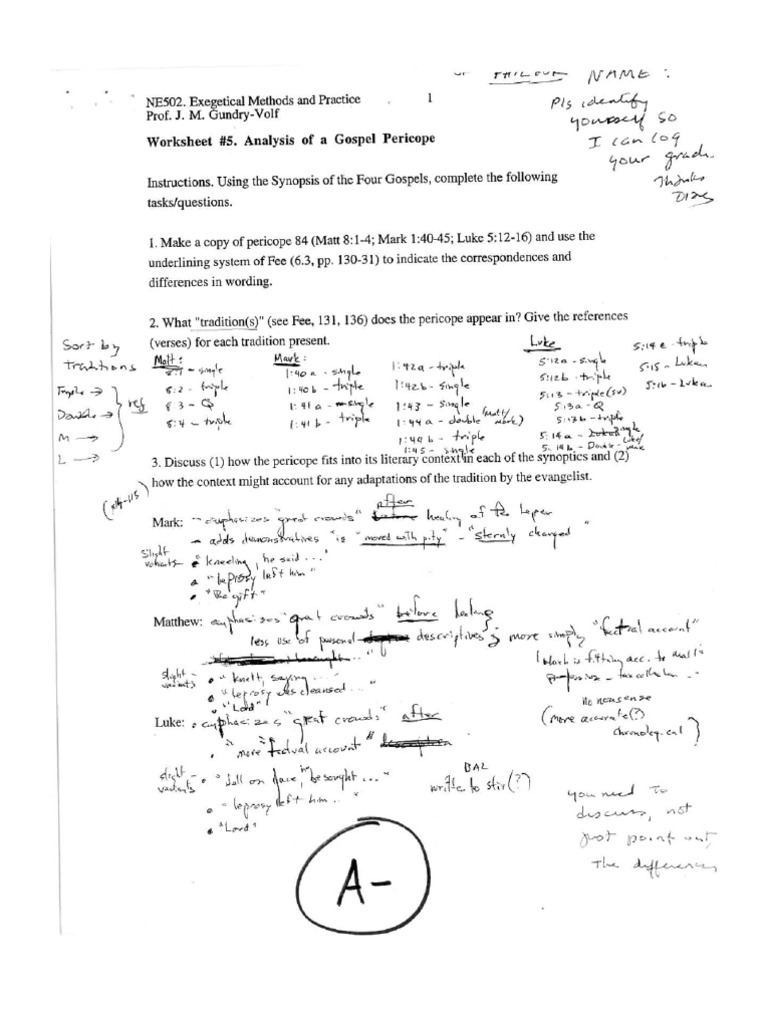 NAME:
Pls identify
yourself so
I can log
your grade.
Thanks
NE502. Exegetical Methods and Practice 1
Prof. J. M. Gundry-Volf
Worksheet #5. Analysis of a Gospel Pericope
Instructions. Using the Synopsis of the Four Gospels, complete the following
tasks/questions.
1. Make a copy of pericope 84 (Matt 8:1-4; Mark 1:40-45; Luke 5:12-16) and use the
underlining system of Fee (6.3, pp. 130-31) to indicate the correspondences and
differences in wording.
2. What "tradition(s)" (see Fee, 131, 136) does the pericope appear in? Give the references
(verses) for each tradition present.
Sort by
Traditions
Triple →
Double →
M →
L →
ref
Matt:
- single
8:2 - triple
8:3 - Q
8:4 - triple
Mark:
1:40a - single
1:40b - triple
1:41a - single
1:41b - triple
1:42a - triple
1:42b - single
1:43 - single
1:44a - double (Matt/Mark)
1:44b - triple
1:45 - single
Luke
5:12a - single
5:12b - triple
5:13 - triple
5:13a - Q
5:13b - triple
5:14a - single
5:14b - Double
5:14c - triple
5:15 - Lukan
5:16 - Lukan
3. Discuss (1) how the pericope fits into its literary context in each of the synoptics and (2)
how the context might account for any adaptations of the tradition by the evangelist.
Mark: - emphasizes "great crowds" after healing of the leper
- adds demonstratives "moved with pity" - "sternly charged"
slight variants - "kneeling, he said ..."
"leprosy left him"
"the gift"
Matthew: emphasizes "great crowds" before healing
less use of personal descriptives; more simply "factual account"
slight variants "knelt, saying ...
"leprosy was cleansed ..."
"Lord"
no nonsense
(more accurate(?)
chronological)
Luke: emphasizes "great crowds" after
"more factual account"
slight variants - "fell on face, besought ..."
"leprosy left him ..."
"Lord"
write to stir(?)
you need to
discuss, not
just point out,
the differences
A-